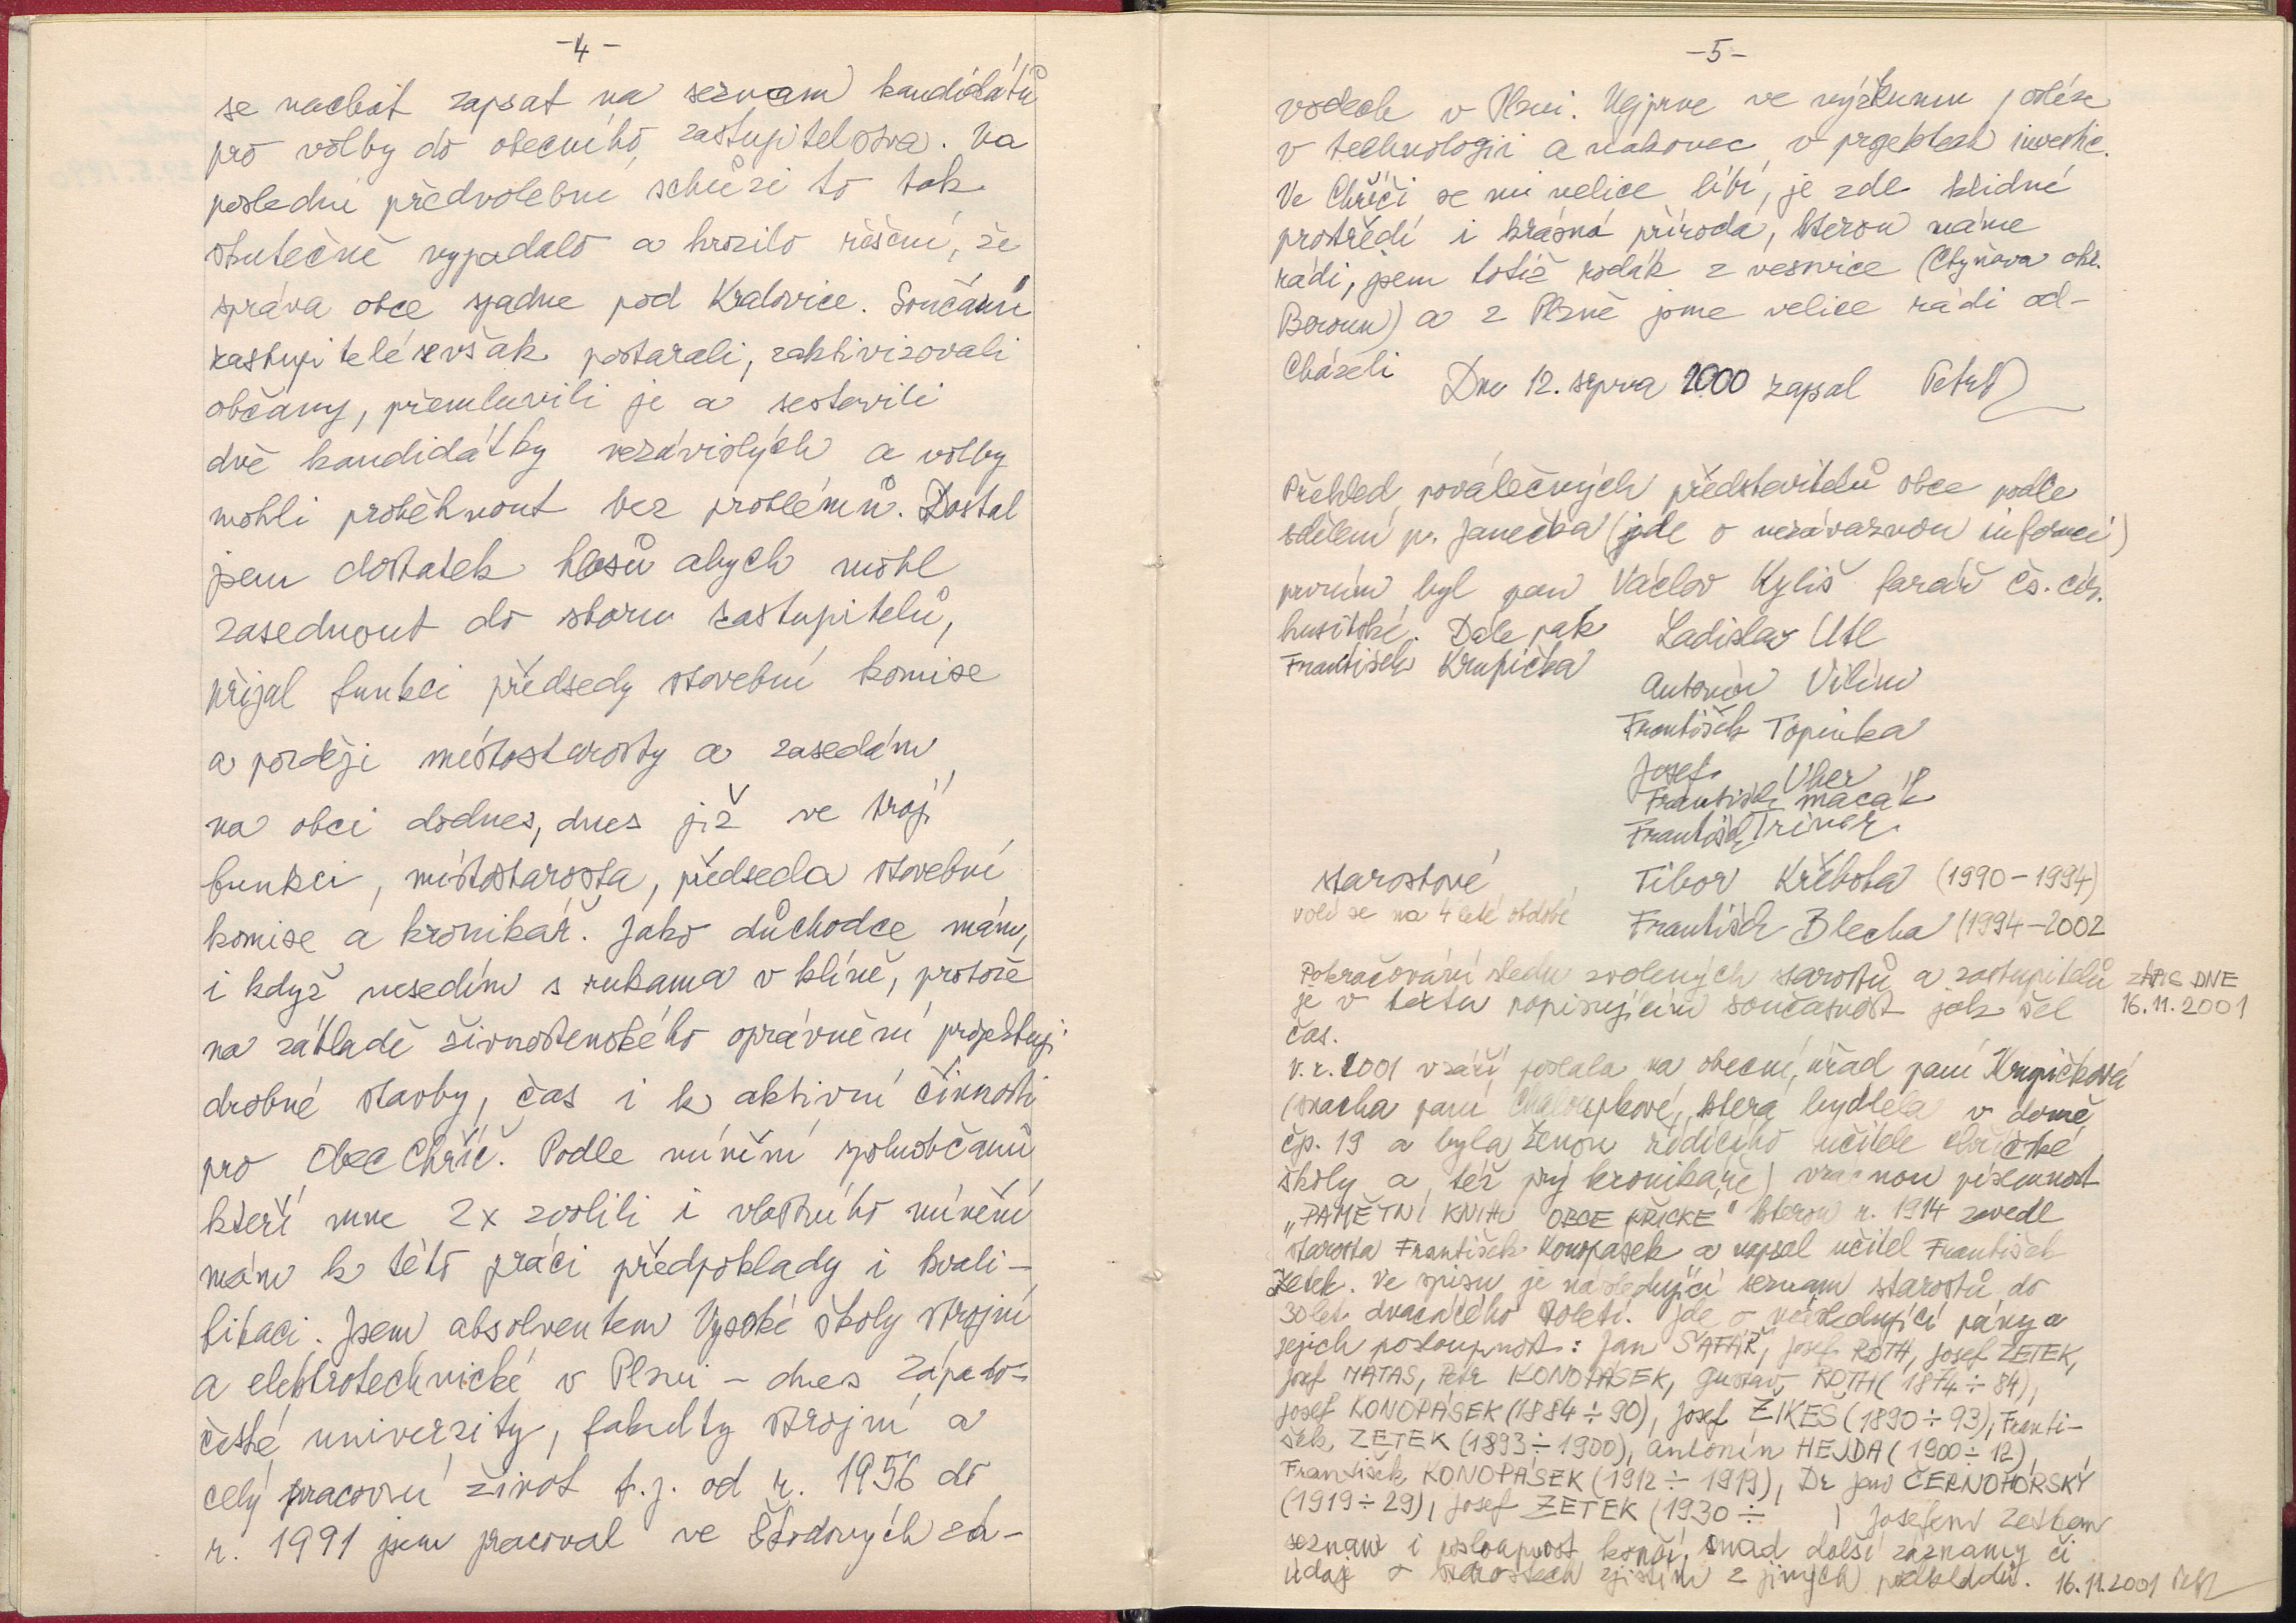 -4-
se nechat zapsat na seznam kandidátů
pro volby do obecního zastupitelstva. Na
poslední předvolební schůzi to tak
skutečně vypadalo a hrozilo řešení, že
správa obce spadne pod Kralovice. Současní
zastupitelé se však postarali, zaktivizovali
občany, přemluvili je a sestavili
dvě kandidátky nezávislých a volby
mohli proběhnout bez problémů. Dostal
jsem dostatek hlasů abych mohl
zasednout do sboru zastupitelů,
přijal funkci předsedy stavební komise
a později místostarosty a zasedám
na obci dodnes, dnes již ve trojí
funkci, místostarosta, předseda stavební
komise a kronikář. Jako důchodce mám,
i když nesedím s rukama v klíně, protože
na základě živnostenského oprávnění projektuji
drobné stavby, čas i k aktivní činnosti
pro Obec Chříč. Podle mínění spoluobčanů
kteří mne 2x zvolili i vlastního mínění
mám k této práci předpoklady i kvali-
fikaci. Jsem absolventem Vysoké školy strojní
a elektrotechnické v Plzni – dnes Západo-
české univerzity, fakulty strojní a
celý pracovní život t.j. od r. 1956 do
r. 1991 jsem pracoval ve Škodových zá-
-5-
vodech v Plzni. Nejprve ve výzkumu, poléze
v technologii a nakonec v projektech investic.
Ve Chříči se mi velice líbí, je zde klidné
prostředí i krásná příroda, kterou máme
rádi, jsem totiž rodák z vesnice (Chyňava okr.
Beroun) a z Plzně jsme velice rádi od-
cházeli
Dne 12. srpna 2000 zapsal
Přehled poválečných představitelů obce podle
sdělení p. Janečka (jde o nezávaznou informci)
prvním byl pan Václav Kyliš farář čs. cír.
husitské. Dále pak Ladislav Utl
František Krupička
Antonín Vilím
František Topinka
Josef Uher
František Macák
František Triner
starostové Tibor Křibota (1990-1994)
volí se na 4 leté období František Blecha (1994-2002
Pokračování sledu zvolených starostů a zastupitelů ZÁPIS DNE
je v textu popisujícím současnost jak šel 16.11.2001
čas.
V. r. 2001 v září poslala na obecní úřad paní Krupičková
(snacha paní Chaloupkové, která bydlela v domě
čp. 19 a byla ženou řídícího učitele chříčské
školy a též prý kronikáře) vzácnou písemnost
„PAMĚTNÍ KNIHU OBCE KŘICKÉ" kterou r. 1914 zavedl
starosta František Konopásek a napsal učitel František
Zetek. Ve spisu je následující seznam starostů do
30 let dvacátého století. Jde o následující pány a
jejich posloupnost: Jan ŠAFAŘ, Josef ROTH, Josef ZETEK,
Josef MATAS, Petr KONOPÁSEK, Gustav ROTH (1874÷84),
Josef KONOPÁSEK (1884÷90), Josef ZIKEŠ (1890÷93), Franti-
šek ZETEK (1893÷1900), Antonín HEJDA (1900÷12),
František KONOPÁSEK (1912÷1919), Dr Jan ČERNOHORSKÝ
(1919÷29), Josef ZETEK (1930÷ ) Josefem Zetkem
seznam i posloupnost končí, snad další záznamy či
údaje o starostech zjistím z jiných podkladů. 16.11.2001